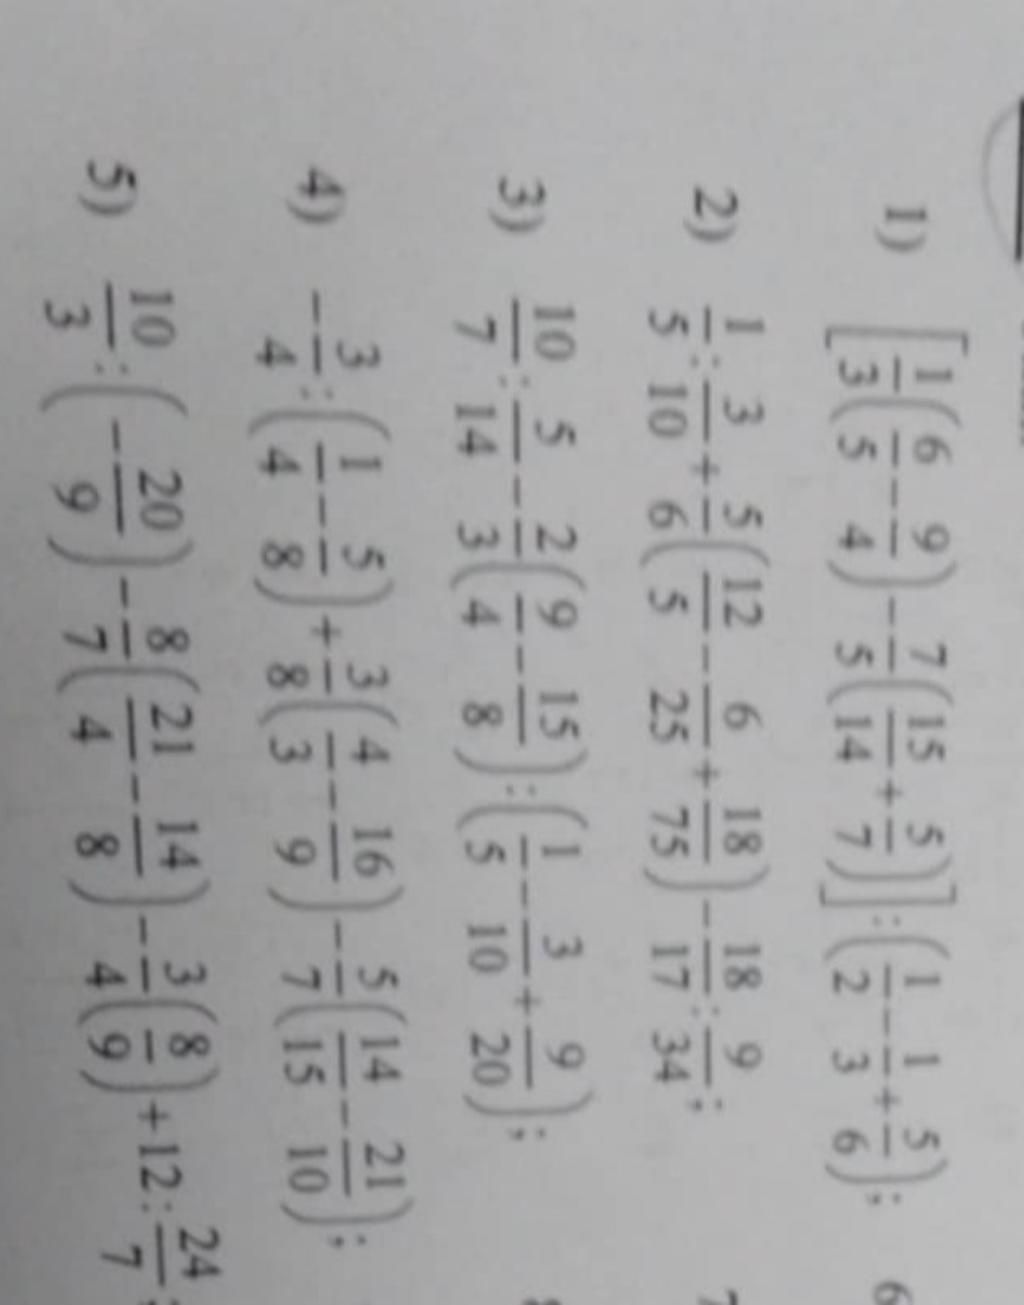 1) [1/3(6/5 - 9/4) - 7/5(15/14 + 5/7)] : (1/2 - 1/3 + 5/6);
2) 1/5 : 3/10 + 5/6(12/5 - 6/25 + 18/75) - 18/17 : 9/34;
3) 10/7 : 5/14 - 2/3(9/4 - 15/8) : (1/5 - 3/10 + 9/20);
4) -3/4 : (1/4 - 5/8) + 3/8(4/3 - 16/9) - 5/7(14/15 - 21/10);
5) 10/3 : (-20/9) - 8/7(21/4 - 14/8) - 3/4(8/9) + 12 : 24/7